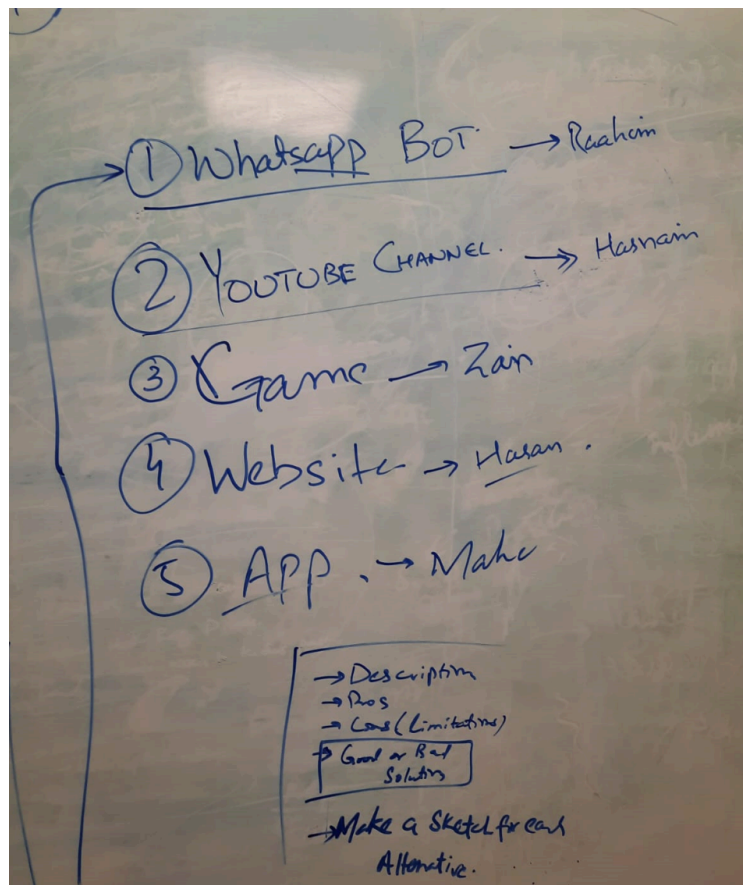 ① Whatsapp BOT. → Raahim
② YOUTUBE CHANNEL. → Hasnain
③ Game → Zain
④ Website → Hasan.
⑤ APP. →
→ Description
→ Pros
→ Cons (Limitations)
→ Good or Bad
Solution
→ Make a Sketch for each
Alternative.